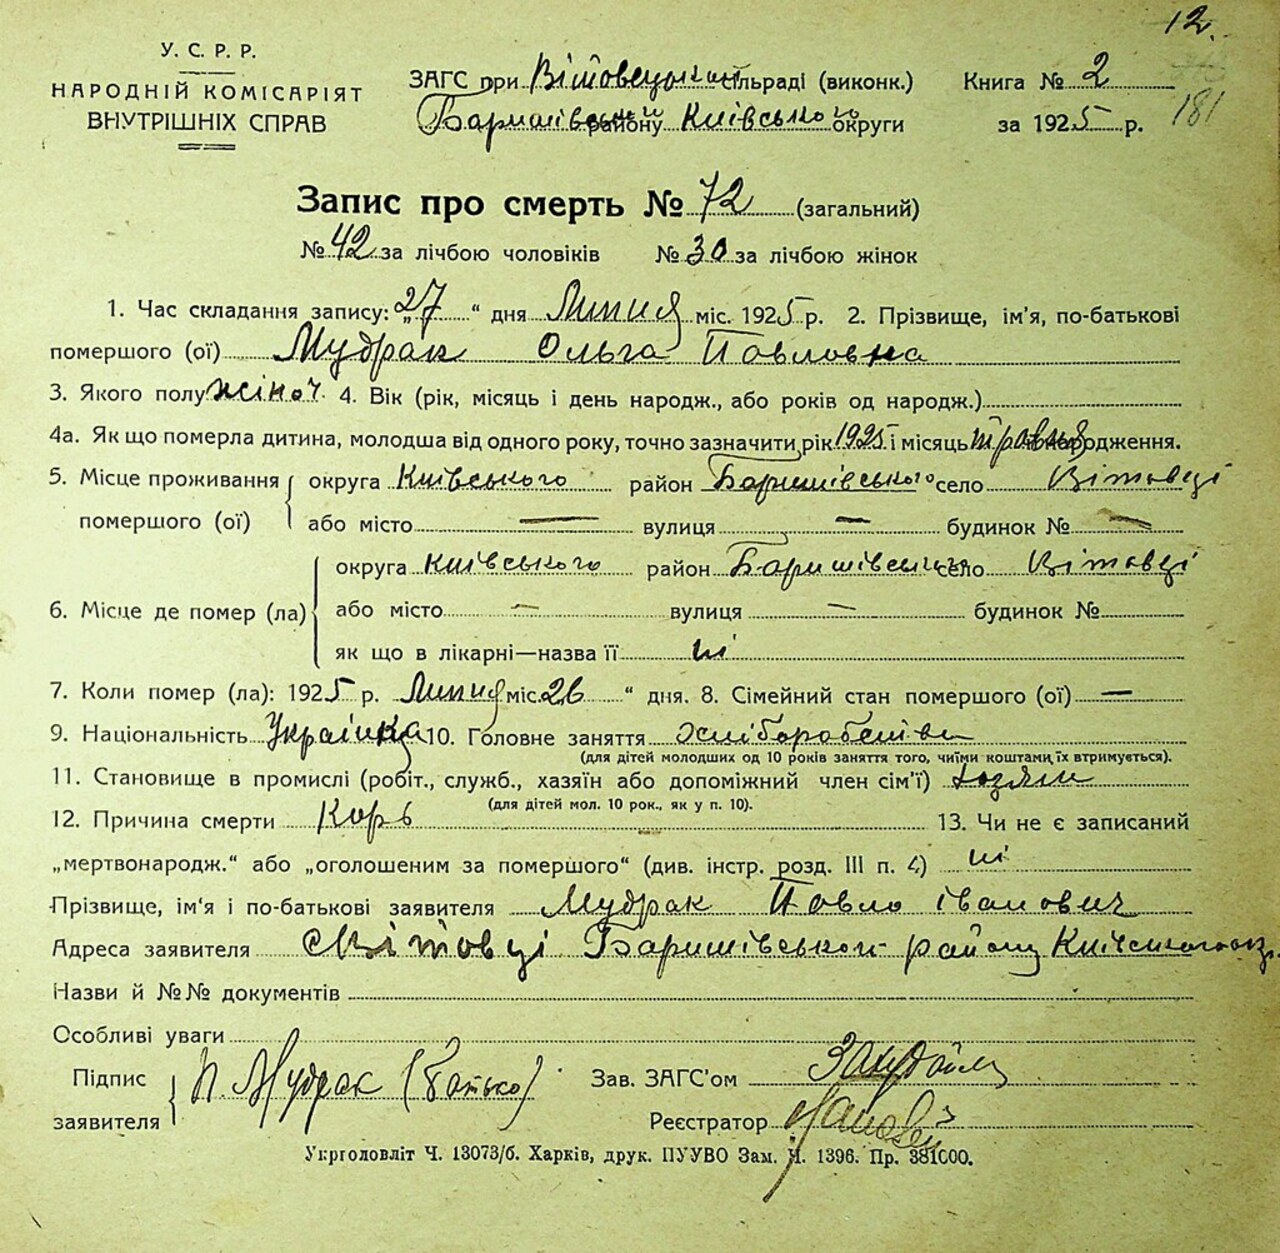 12.
У. С. Р. Р.
НАРОДНІЙ КОМІСАРІЯТ
ВНУТРІШНІХ СПРАВ
ЗАГС при Вітовецькій сільраді (виконк.)
Баришівський району Київського округи
Книга № 2
за 1925 р.
181
Запис про смерть № 72 (загальний)
№ 42 за лічбою чоловіків № 30 за лічбою жінок
1. Час складання запису: „27“ дня Липня міс. 1925 р. 2. Прізвище, ім'я, по-батькові
помершого (ої) Мудрак Ольга Павловна
3. Якого полу жіноч. 4. Вік (рік, місяць і день народж., або років од народж.)
4а. Як що померла дитина, молодша від одного року, точно зазначити рік 1925 і місяць травня народження.
5. Місце проживання помершого (ої)
округа Київського район Баришівського село Вітовці
або місто — вулиця — будинок № —
6. Місце де помер (ла)
округа Київського район Баришівський село Вітовці
або місто — вулиця — будинок №
як що в лікарні—назва її ні
7. Коли помер (ла): 1925 р. Липня міс. 26 “ дня. 8. Сімейний стан помершого (ої) —
9. Національність Українка 10. Головне заняття хліборобство
(для дітей молодших од 10 років заняття того, чиїми коштами їх втримується).
11. Становище в промислі (робіт., служб., хазяїн або допоміжний член сім'ї) хозяин
(для дітей мол. 10 рок., як у п. 10).
12. Причина смерти Корь 13. Чи не є записаний
„мертвонародж.“ або „оголошеним за помершого“ (див. інстр. розд. III п. 4) ні
Прізвище, ім'я і по-батькові заявителя Мудрак Павло іванович
Адреса заявителя с Вітовці Баришівськог району Київського окр.
Назви й №№ документів
Особливі уваги
Підпис заявителя П. Мудрак (батько)
Зав. ЗАГС'ом
Реєстратор
Укрголовліт Ч. 13073/б. Харків, друк. ПУУВО Зам. Ч. 1396. Пр. 381000.